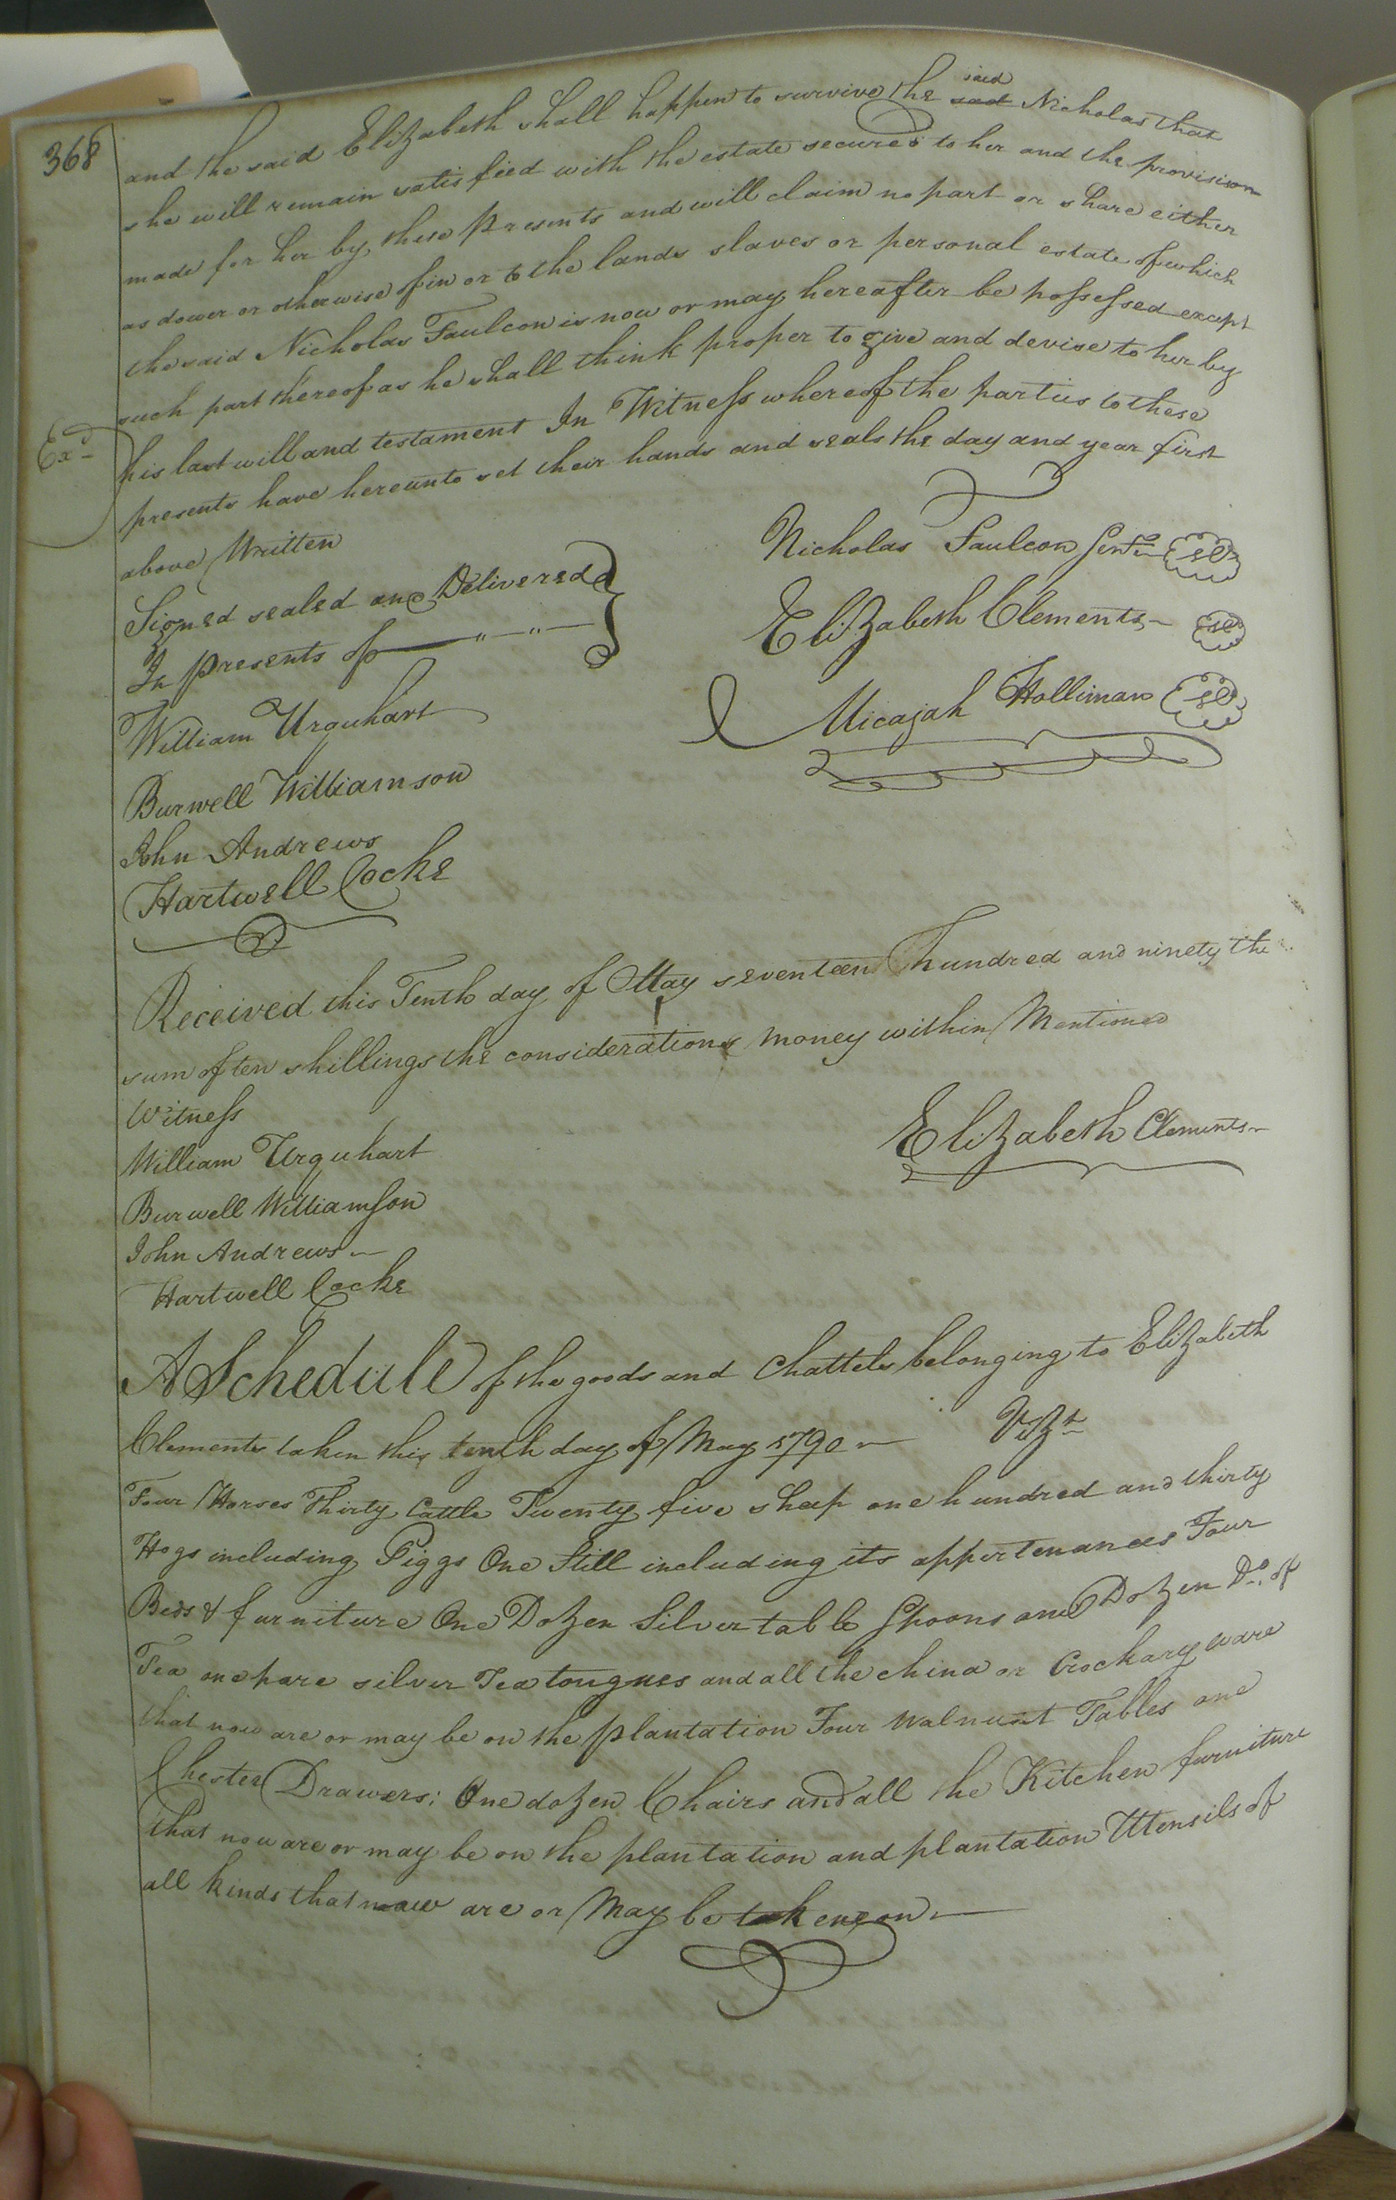 368
and the said Elizabeth shall happen to survive the said said Nicholas that
she will remain satisfied with the estate secured to her and the provision
made for her by these presents and will claim no part or share either
as dower or otherwise of in or to the lands slaves or personal estate of which
the said Nicholas Faulcon is now or may hereafter be possessed except
such part thereof as he shall think proper to give and devise to her by
Exd
his last will and testament In Witness whereof the parties to these
presents have hereunto set their hands and seals the day and year first
above Written
Signed sealed and Delivered
In presents of
Nicholas Faulcon Senr
Elizabeth Clements
Micajah Holliman
William Urquhart
Burwell Williamson
John Andrews
Hartwell Cocke
Received this Tenth day of May seventeen hundred and ninety the
sum of ten shillings the considerations money within Mentioned
Witness
Elizabeth Clements
William Urquhart
Burwell Williamson
John Andrews
Hartwell Cocke
A Schedule of the goods and Chattels belonging to Elizabeth
Clements taken this tenth day of May 1790 Vizt
Four Horses Thirty Cattle Twenty five sheep one hundred and thirty
Hogs including Piggs One Still including its appertenances Four
Beds & furniture One Dozen Silver table Spoons and Dozen Do. of
Tea one pare silver Tea tongues and all the china or Crockary ware
that now are or may be on the plantation Four Walnunt Tables one
Chester Drawers; One dozen Chairs and all the Kitchen furniture
that now are or may be on the plantation and plantation Utensils of
all kinds that now are or May be on